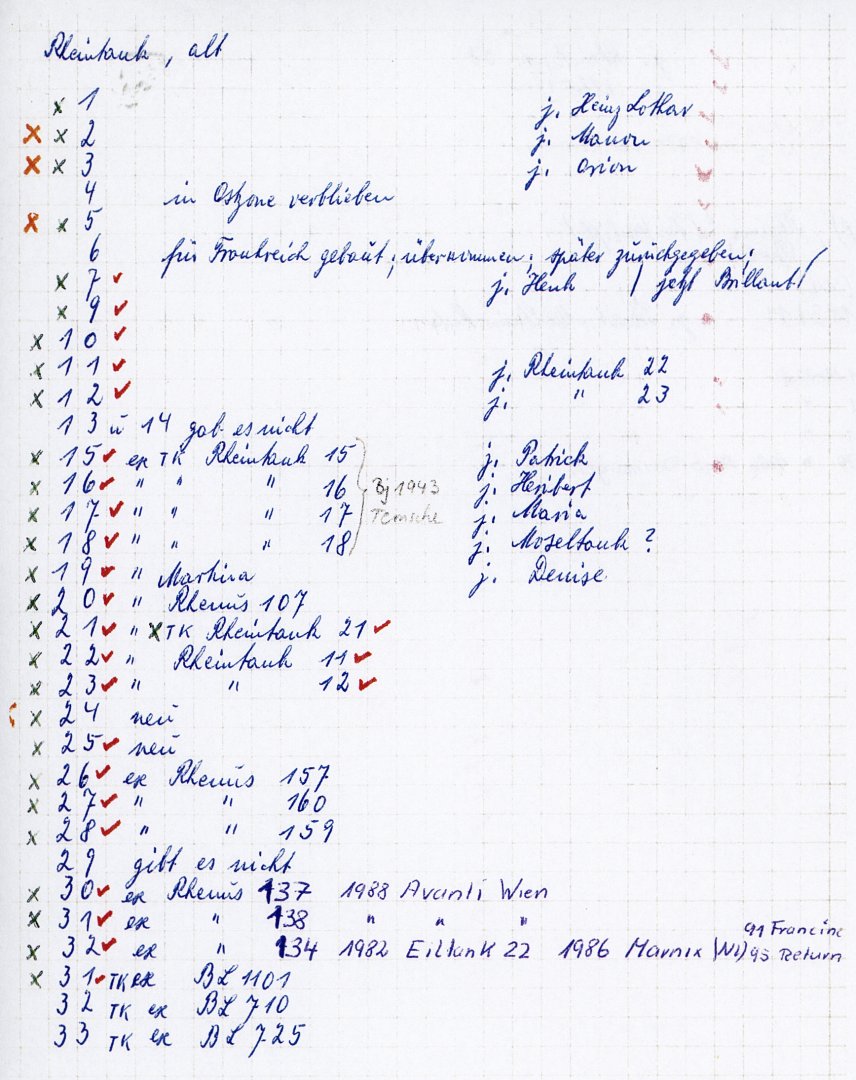 Rheintank, alt
x 1 j. Heinz Lothar
x x 2 j. Manon
x x 3 j. Orion
4 in Ostzone verblieben
x x 5
6 für Frankreich gebaut; übernommen; später zurückgegeben;
x 7 ✓ j. Henk / jetzt Brillant /
x 9 ✓
x 10 ✓
x 11 ✓ j. Rheintank 22
x 12 ✓ j. " 23
13 u 14 gab es nicht
x 15 ✓ ex TK Rheintank 15 j. Patrick
x 16 ✓ " " " 16 Bj 1943 j. Heribert
x 17 ✓ " " " 17 Temsche j. Maria
x 18 ✓ " " " 18 j. Moseltank ?
x 19 ✓ " Martina j. Denise
x 20 ✓ " Rhenus 107
x 21 ✓ " x TK Rheintank 21 ✓
x 22 ✓ " Rheintank 11 ✓
x 23 ✓ " " 12 ✓
x 24 neu
x 25 ✓ neu
x 26 ✓ ex Rhenus 157
x 27 ✓ " " 160
x 28 ✓ " " 159
29 gibt es nicht
x 30 ✓ ex Rhenus 137 1988 Avanti Wien
x 31 ✓ ex " 138 " " "
91 Francine
x 32 ✓ ex " 134 1982 Eiltank 22 1986 Marnix (Nl) 95 Return
x 31 ✓ TK ex BL 1101
32 TK ex BL 710
33 TK ex BL 725